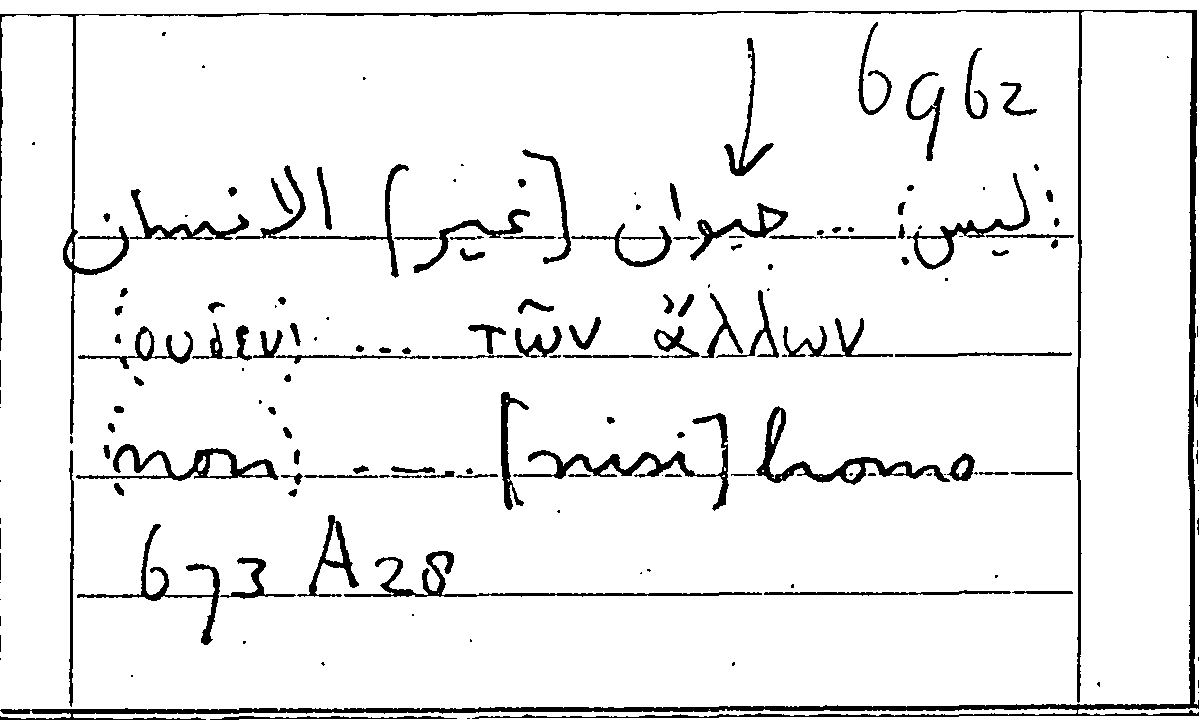 6962
ليس ... حيوان [غير] الانسان
ουδεν ... τῶν ἄλλων
non ... [nisi] homo
673 A 28